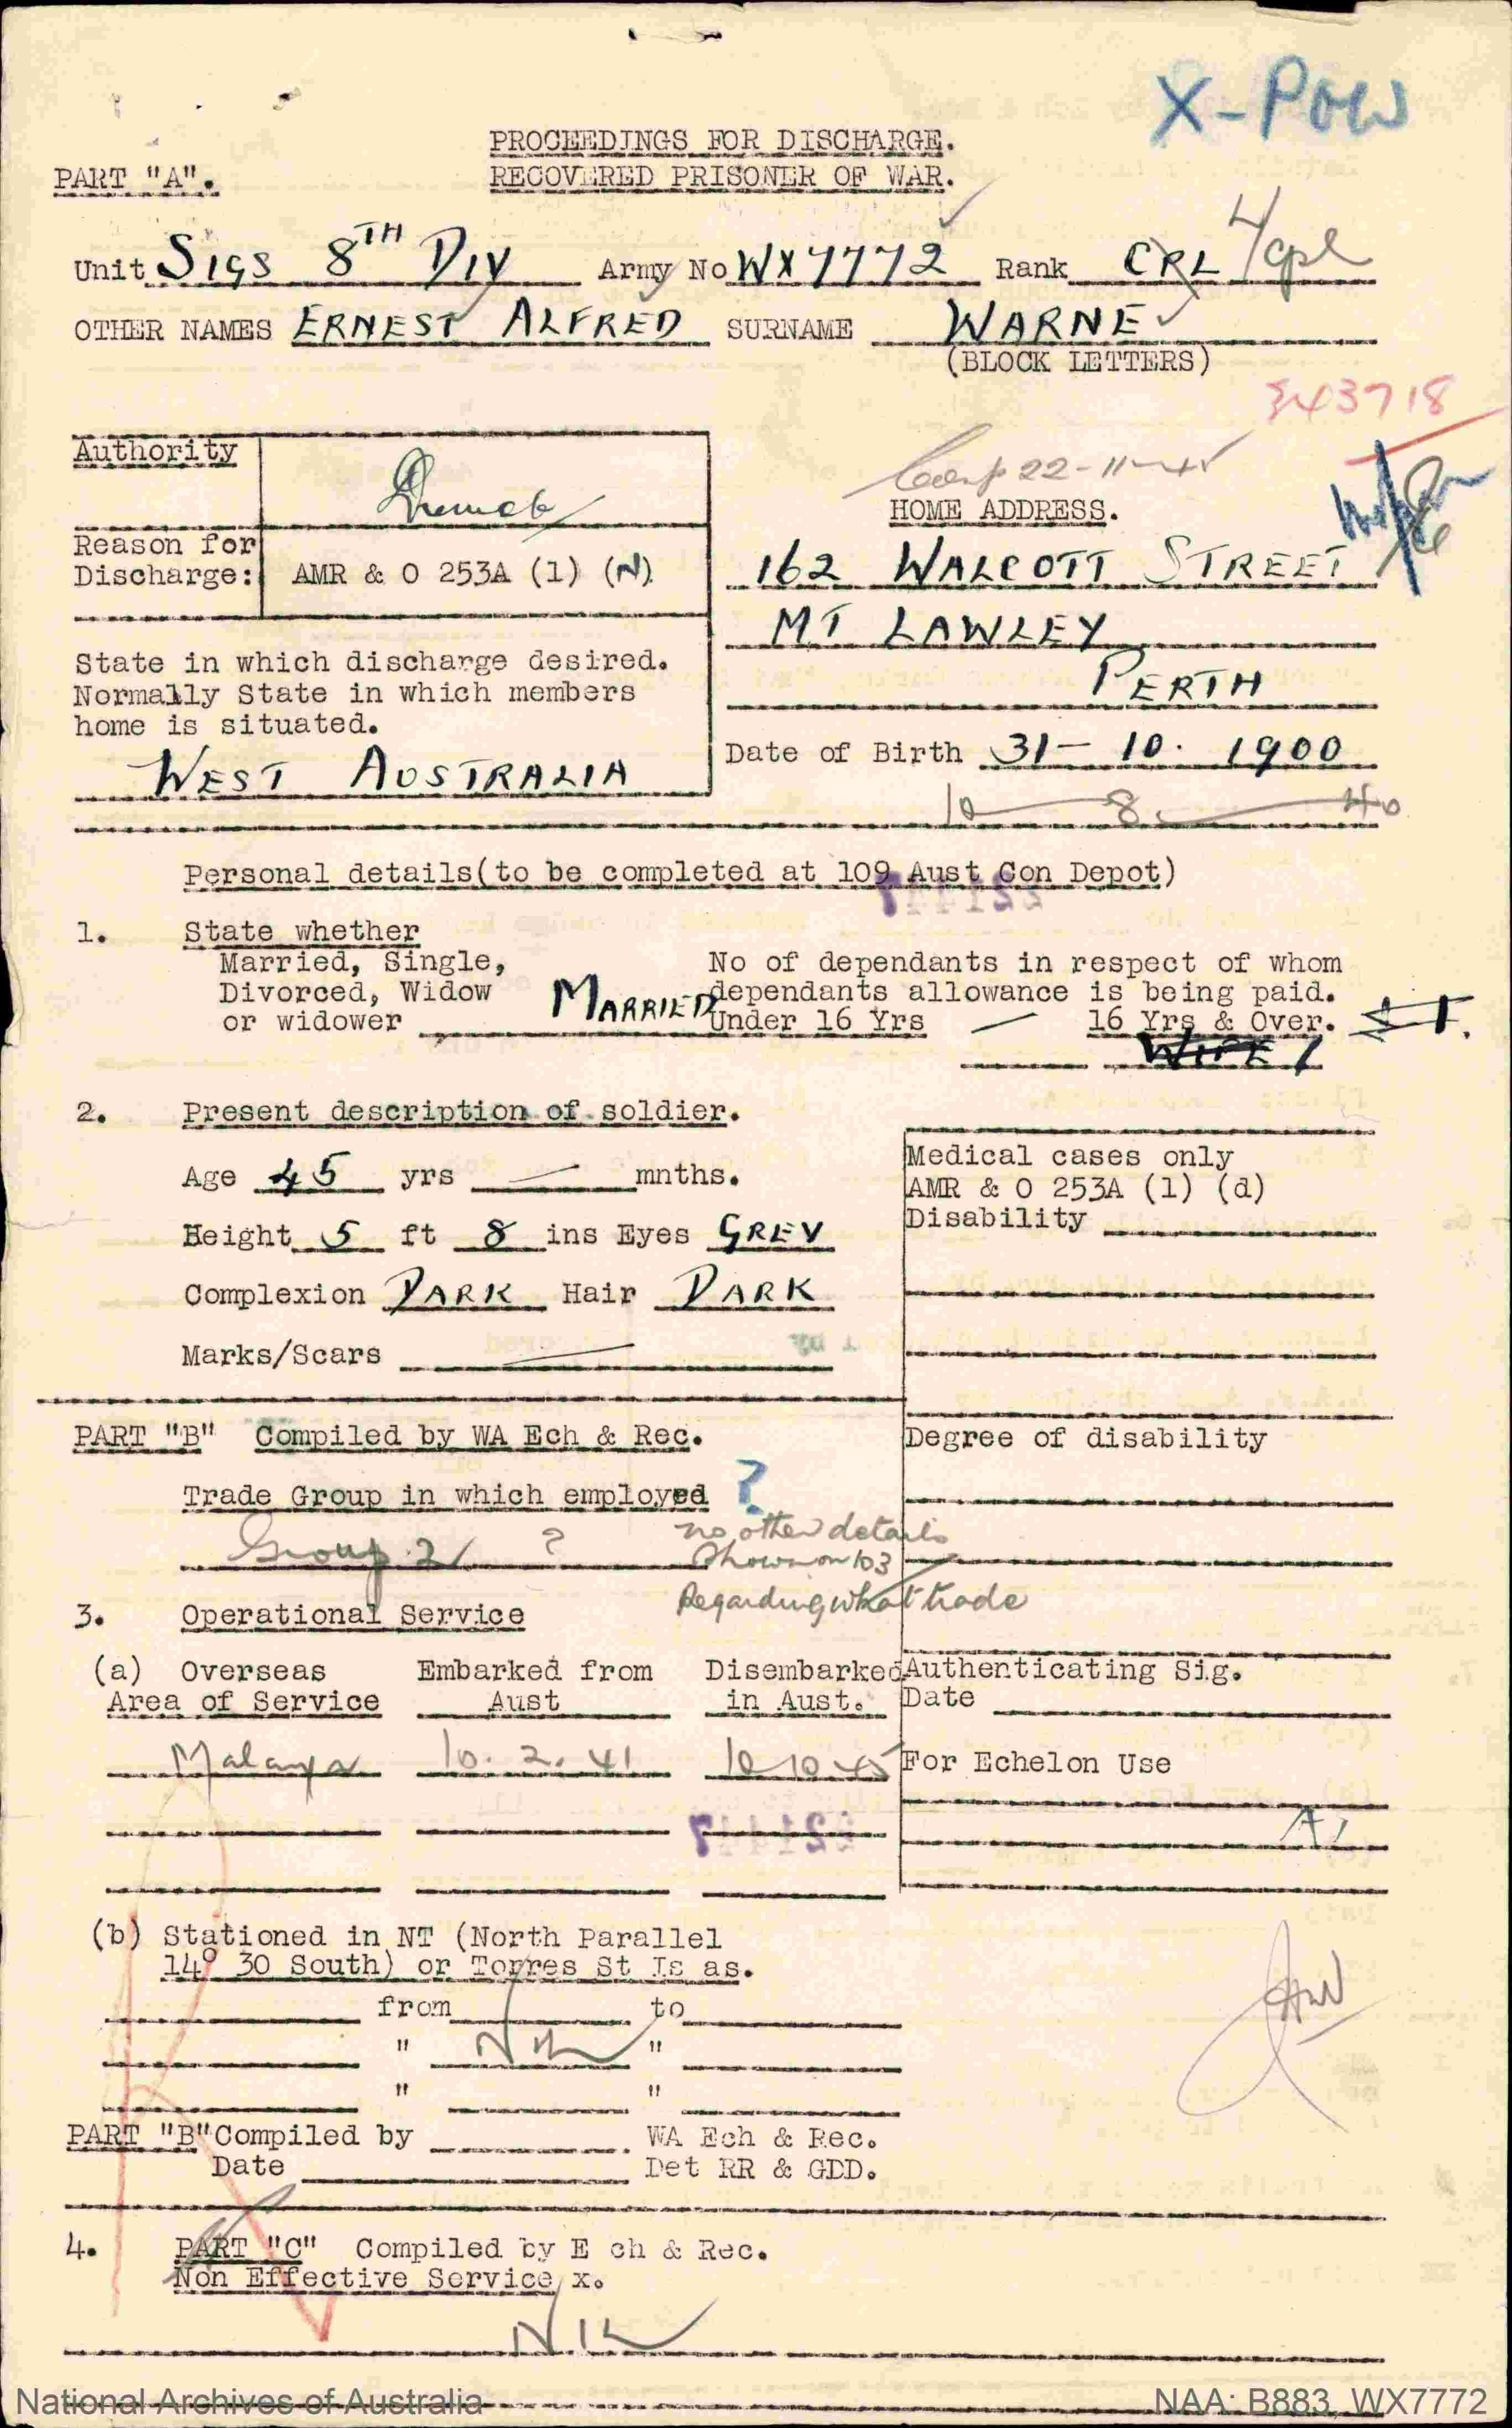 X-POW
PROCEEDINGS FOR DISCHARGE.
PART "A".
RECOVERED PRISONER OF WAR.
Unit SIGS 8TH DIV Army No WX7772 Rank CPL L/Cpl
OTHER NAMES ERNEST ALFRED SURNAME WARNE
(BLOCK LETTERS)
343718
Authority
22-11-45
HOME ADDRESS.
Reason for
Discharge: AMR & O 253A (1) (N)
162 WALCOTT STREET
MT LAWLEY
State in which discharge desired.
Normally State in which members
home is situated.
PERTH
WEST AUSTRALIA
Date of Birth 31-10.1900
10 8 40
Personal details(to be completed at 109 Aust Con Depot)
1. State whether
Married, Single,
Divorced, Widow
or widower MARRIED
No of dependants in respect of whom
dependants allowance is being paid.
Under 16 Yrs — 16 Yrs & Over.
WIFE 1
2. Present description of soldier.
Age 45 yrs — mnths.
Height 5 ft 8 ins Eyes GREY
Complexion DARK Hair DARK
Marks/Scars —
Medical cases only
AMR & O 253A (1) (d)
Disability
PART "B" Compiled by WA Ech & Rec.
Degree of disability
Trade Group in which employed ?
Group 2 ? no other details
Shown on 103
Regarding what trade
3. Operational Service
(a) Overseas Embarked from Disembarked
Area of Service Aust in Aust.
Authenticating Sig.
Date
Malaya 10.2.41 10 10 45
For Echelon Use
A1
(b) Stationed in NT (North Parallel
14° 30 South) or Torres St Is as.
from to
" Nil "
" "
PART "B" Compiled by . WA Ech & Rec.
Date Det RR & GDD.
4. PART "C" Compiled by E ch & Rec.
Non Effective Service x.
NIL
National Archives of Australia NAA: B883, WX7772